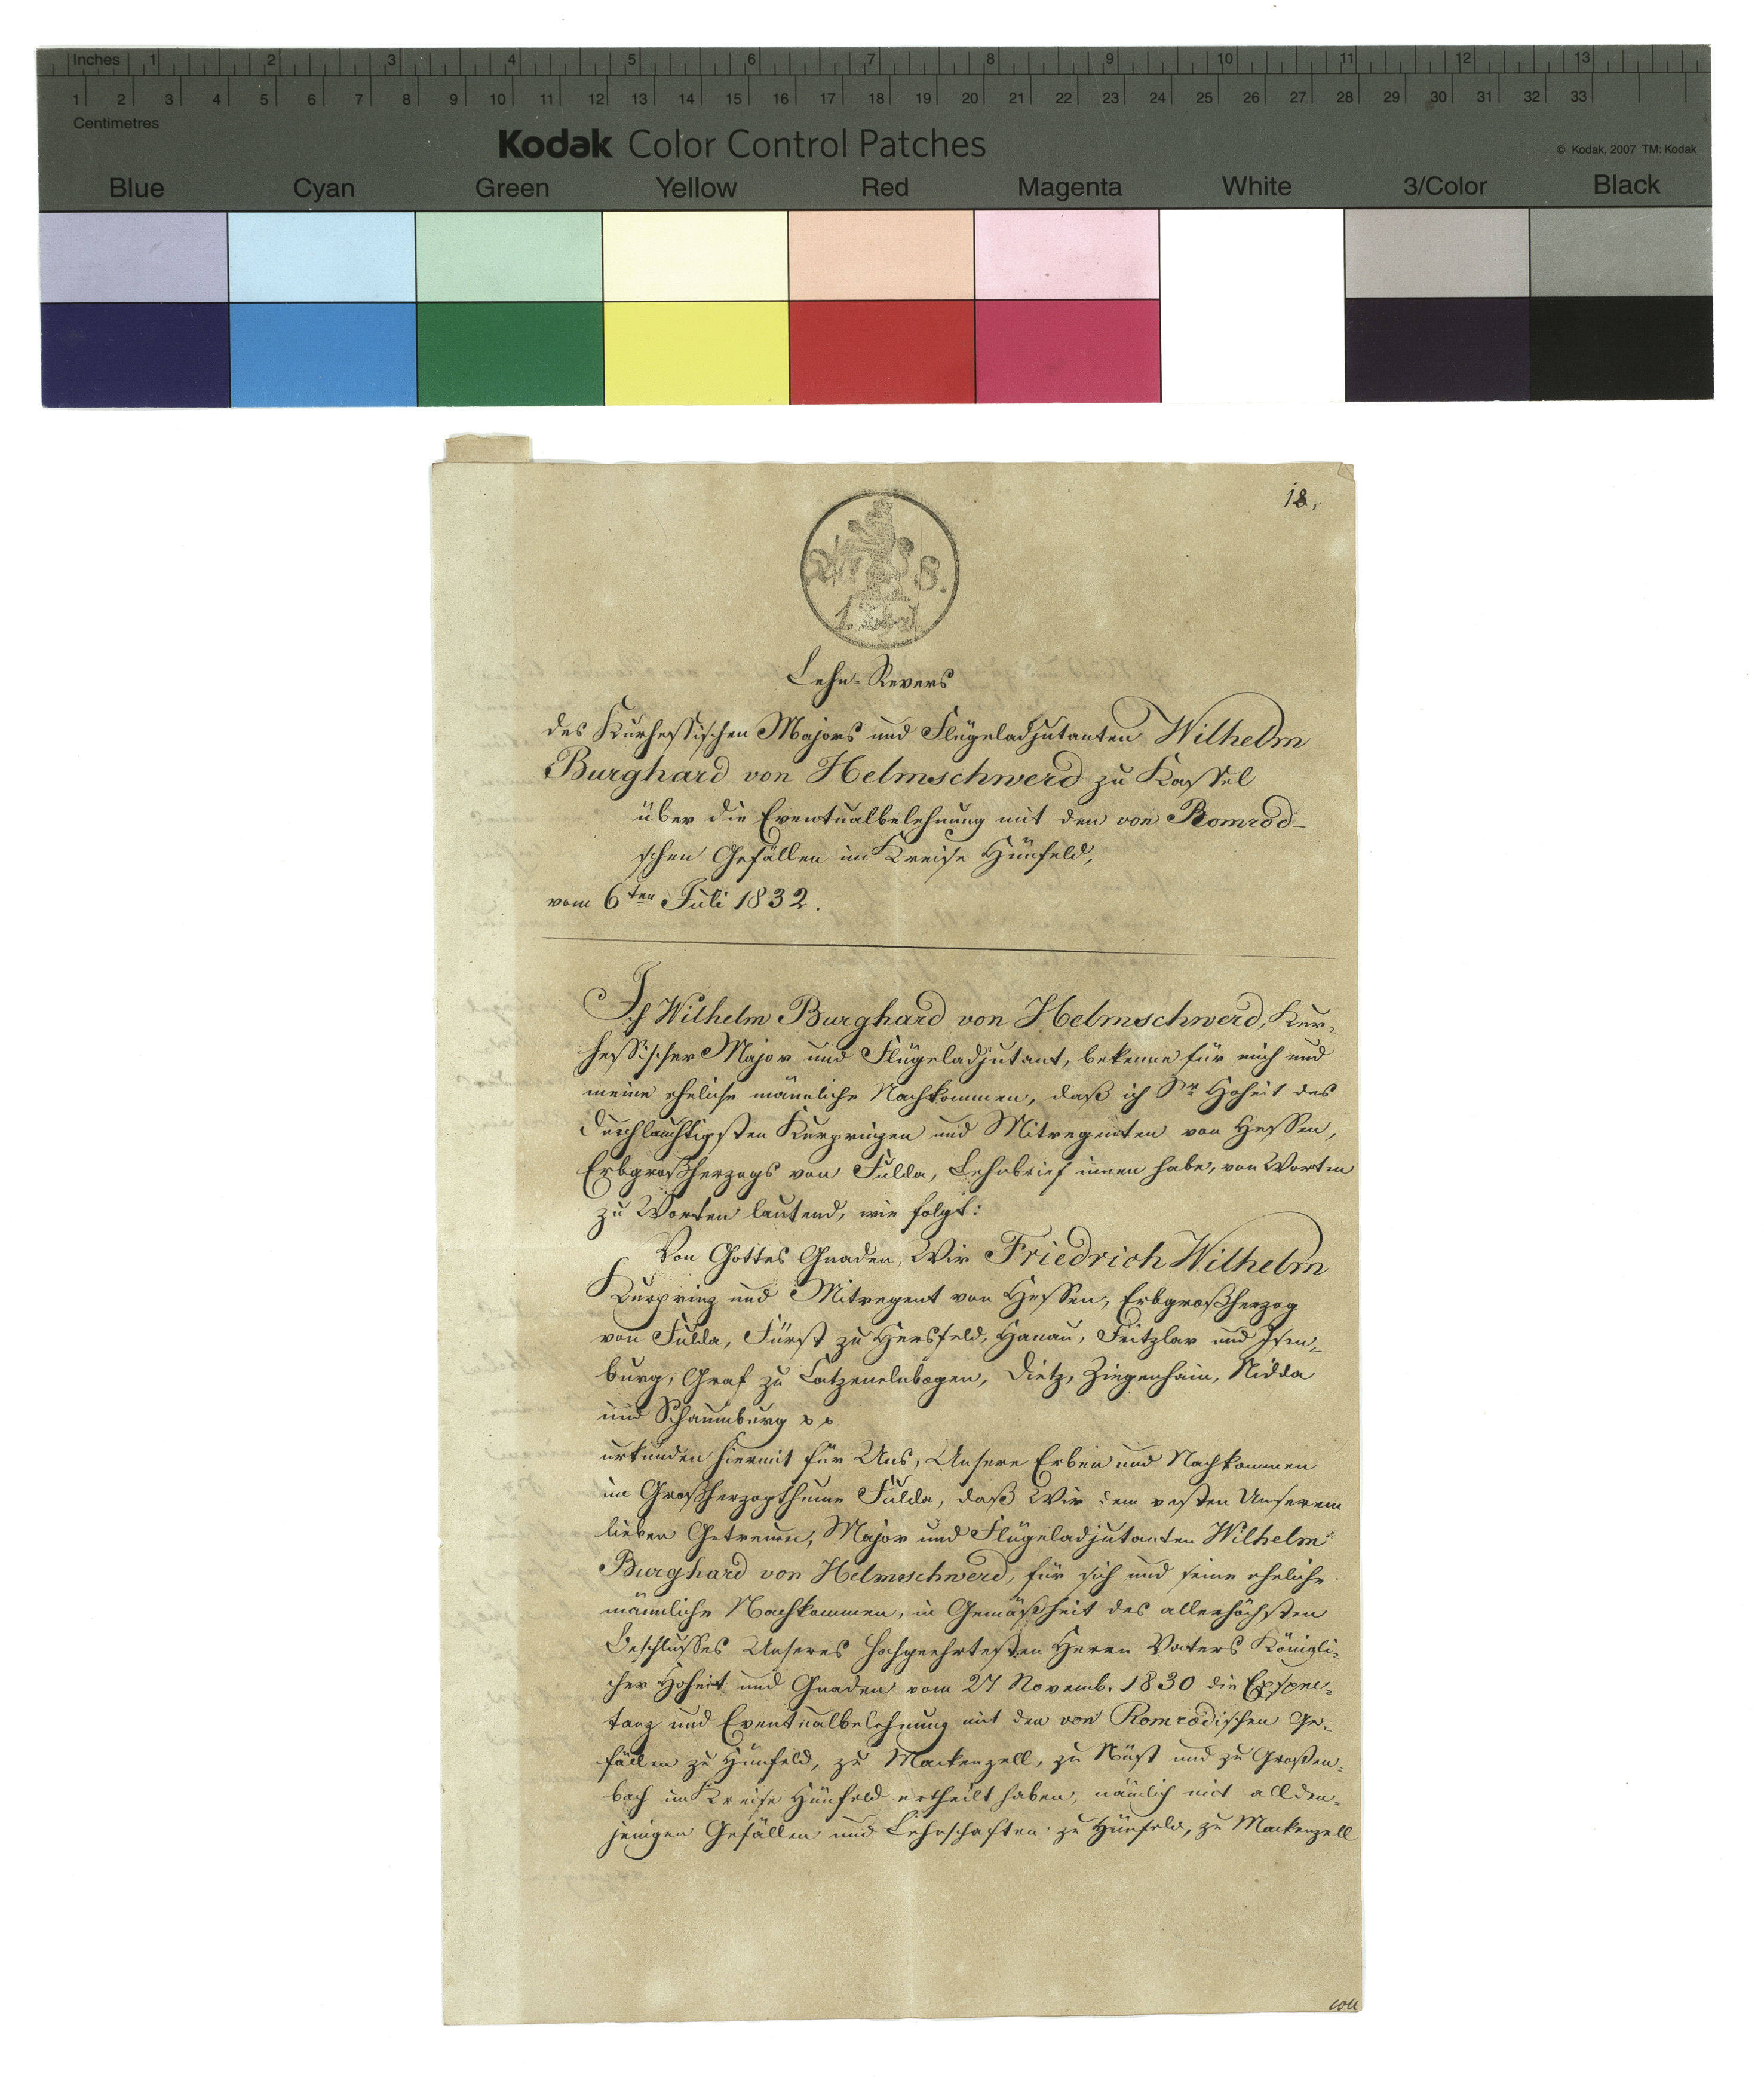 Inches 1 2 3 4 5 6 7 8 9 10 11 12 13
1 2 3 4 5 6 7 8 9 10 11 12 13 14 15 16 17 18 19 20 21 22 23 24 25 26 27 28 29 30 31 32 33
Centimetres
Kodak Color Control Patches
© Kodak, 2007 TM: Kodak
Blue Cyan Green Yellow Red Magenta White 3/Color Black
18,
S.
1. Thal.
Lehn-Revers
des Kurhessischen Majors und Flügeladjutanten Wilhelm
Burghard von Helmschwerd zu Kassel
über die Eventualbelehnung mit den von Romrod-
schen Gefällen im Kreise Hünfeld,
vom 6ten Juli 1832.
Ich Wilhelm Burghard von Helmschwerd, Kur-
hessischer Major und Flügeladjutant, bekenne für mich und
meine eheliche männliche Nachkommen, daß ich Sr Hoheit des
Durchlauchtigsten Kurprinzen und Mitregenten von Hessen,
Erbgroßherzogs von Fulda, Lehnbrief innen habe, von Worten
zu Worten lautend, wie folgt:
Von Gottes Gnaden, Wir Friedrich Wilhelm
Kurprinz und Mitregent von Hessen, Erbgroßherzog
von Fulda, Fürst zu Hersfeld, Hanau, Fritzlar und Isen-
burg, Graf zu Catzenelnbogen, Dietz, Ziegenhain, Nidda
und Schaumburg p p
urkunden hiermit für Uns, Unsere Erben und Nachkommen
im Großherzogthume Fulda, daß Wir dem vesten Unserem
lieben Getreuen, Major und Flügeladjutanten Wilhelm
Burghard von Helmschwerd, für sich und seine eheliche
männliche Nachkommen, in Gemäßheit des allerhöchsten
Beschlusses Unseres hochgeehrtesten Herrn Vaters Königli-
cher Hoheit und Gnaden vom 27 Novemb. 1830 die Expec-
tanz und Eventualbelehnung mit den von Romrodischen Ge-
fällen zu Hünfeld, zu Mackenzell, zu Nüst und zu Großen-
bach im Kreise Hünfeld ertheilt haben, nämlich mit allden-
jenigen Gefällen und Lehnschaften zu Hünfeld, zu Mackenzell